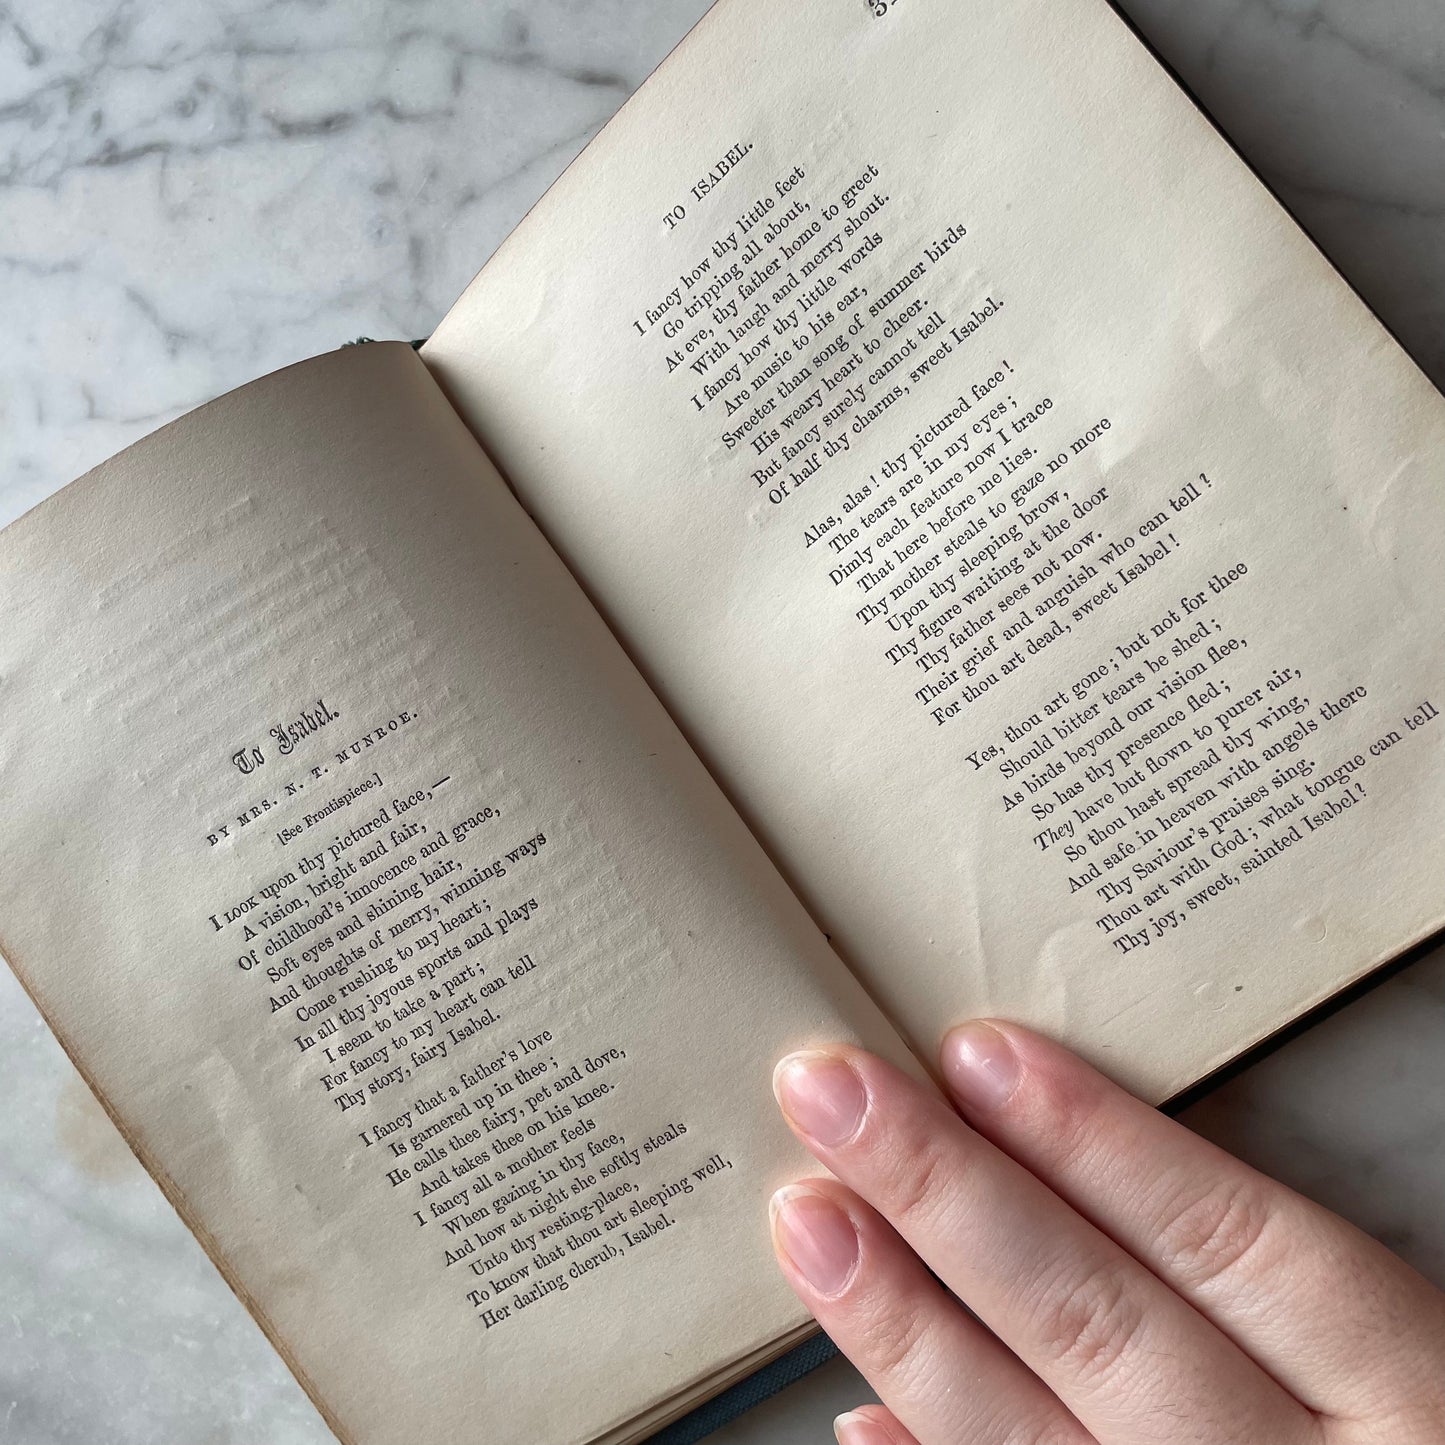 To Isabel.
BY MRS. N. T. MUNROE.
[See Frontispiece.]
I LOOK upon thy pictured face,—
A vision, bright and fair,
Of childhood's innocence and grace,
Soft eyes and shining hair,
And thoughts of merry, winning ways
Come rushing to my heart;
In all thy joyous sports and plays
I seem to take a part;
For fancy to my heart can tell
Thy story, fairy Isabel.
I fancy that a father's love
Is garnered up in thee;
He calls thee fairy, pet and dove,
And takes thee on his knee.
I fancy all a mother feels
When gazing in thy face,
And how at night she softly steals
Unto thy resting-place,
To know that thou art sleeping well,
Her darling cherub, Isabel.
TO ISABEL.
I fancy how thy little feet
Go tripping all about,
At eve, thy father home to greet
With laugh and merry shout.
I fancy how thy little words
Are music to his ear,
Sweeter than song of summer birds
His weary heart to cheer.
But fancy surely cannot tell
Of half thy charms, sweet Isabel.
Alas, alas! thy pictured face!
The tears are in my eyes;
Dimly each feature now I trace
That here before me lies.
Thy mother steals to gaze no more
Upon thy sleeping brow,
Thy figure waiting at the door
Thy father sees not now.
Their grief and anguish who can tell?
For thou art dead, sweet Isabel!
Yes, thou art gone; but not for thee
Should bitter tears be shed;
As birds beyond our vision flee,
So has thy presence fled;
They have but flown to purer air,
So thou hast spread thy wing,
And safe in heaven with angels there
Thy Saviour's praises sing.
Thou art with God; what tongue can tell
Thy joy, sweet, sainted Isabel?